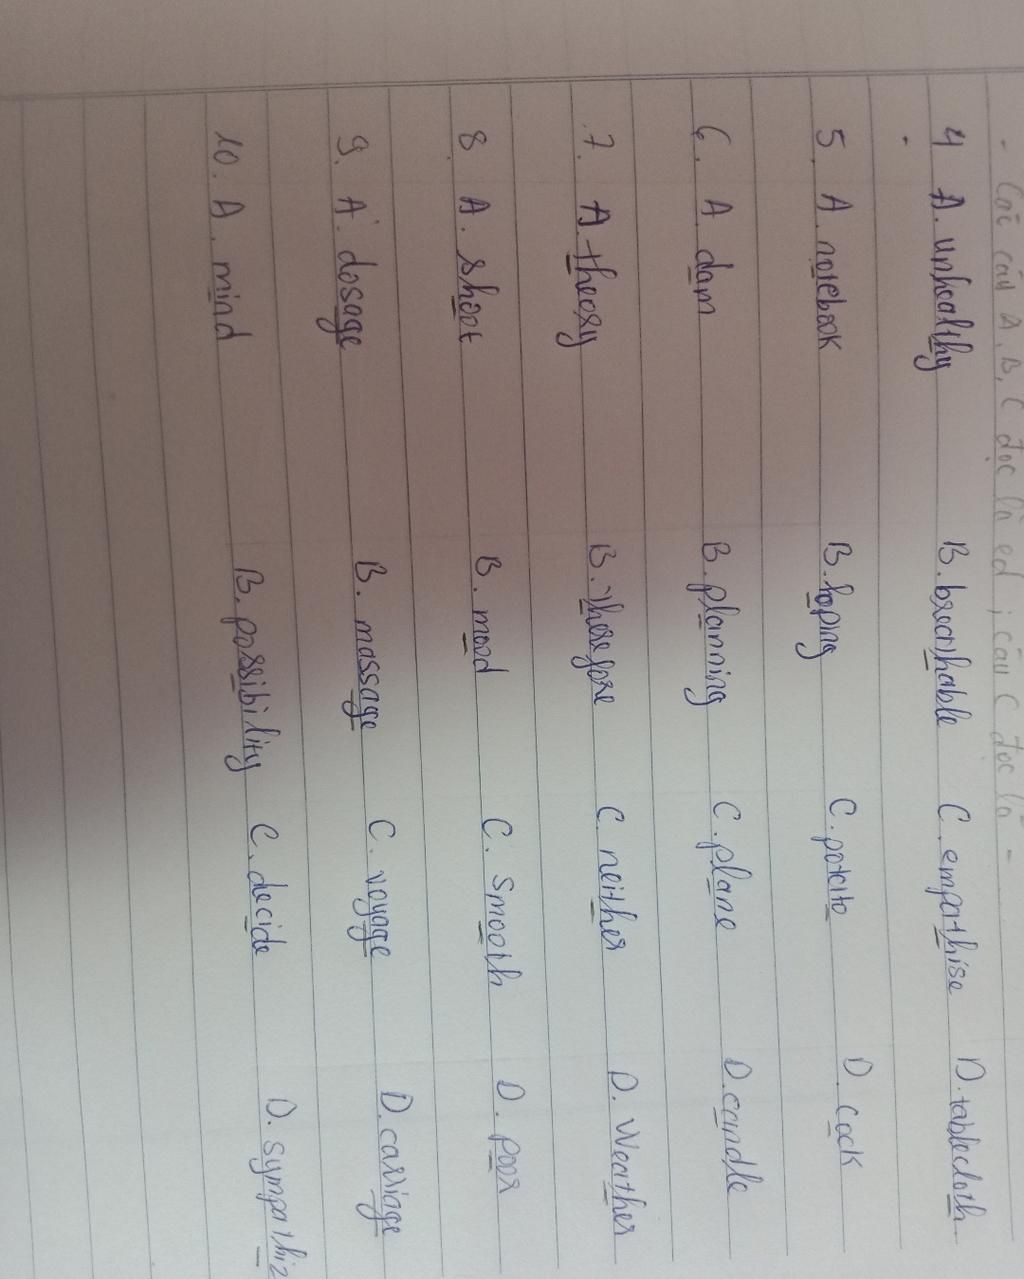 - Các câu A, B, C đọc là ed ; câu C đọc là -
4 A. unhealthy B. breathable C. empathise D. tablecloth.
5. A. notebook B. hoping C. potato D. cock
6. A. dam B. planning C. plane D. candle
7. A. theory B. therefore C. neither D. Weather
8. A. shoot B. mood C. smooth D. poor
9. A. dosage B. massage C. voyage D. carriage
10. A. mind B. possibility C. decide D. sympathiz